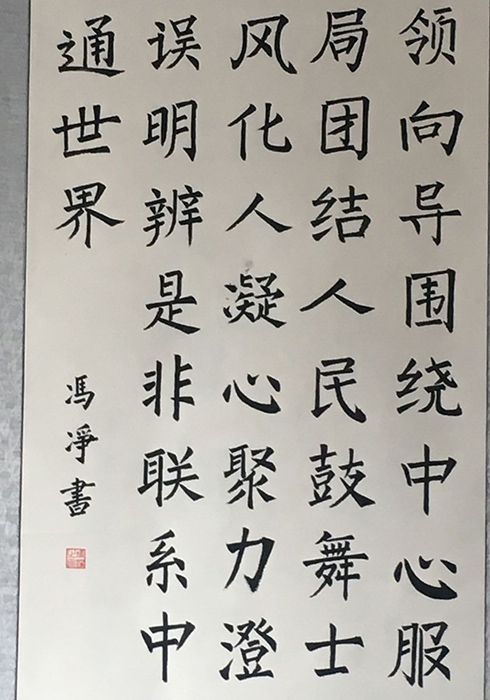 领向导围绕中心服
局团结人民鼓舞士
风化人凝心聚力澄
误明辨是非联系中
通世界
冯净书